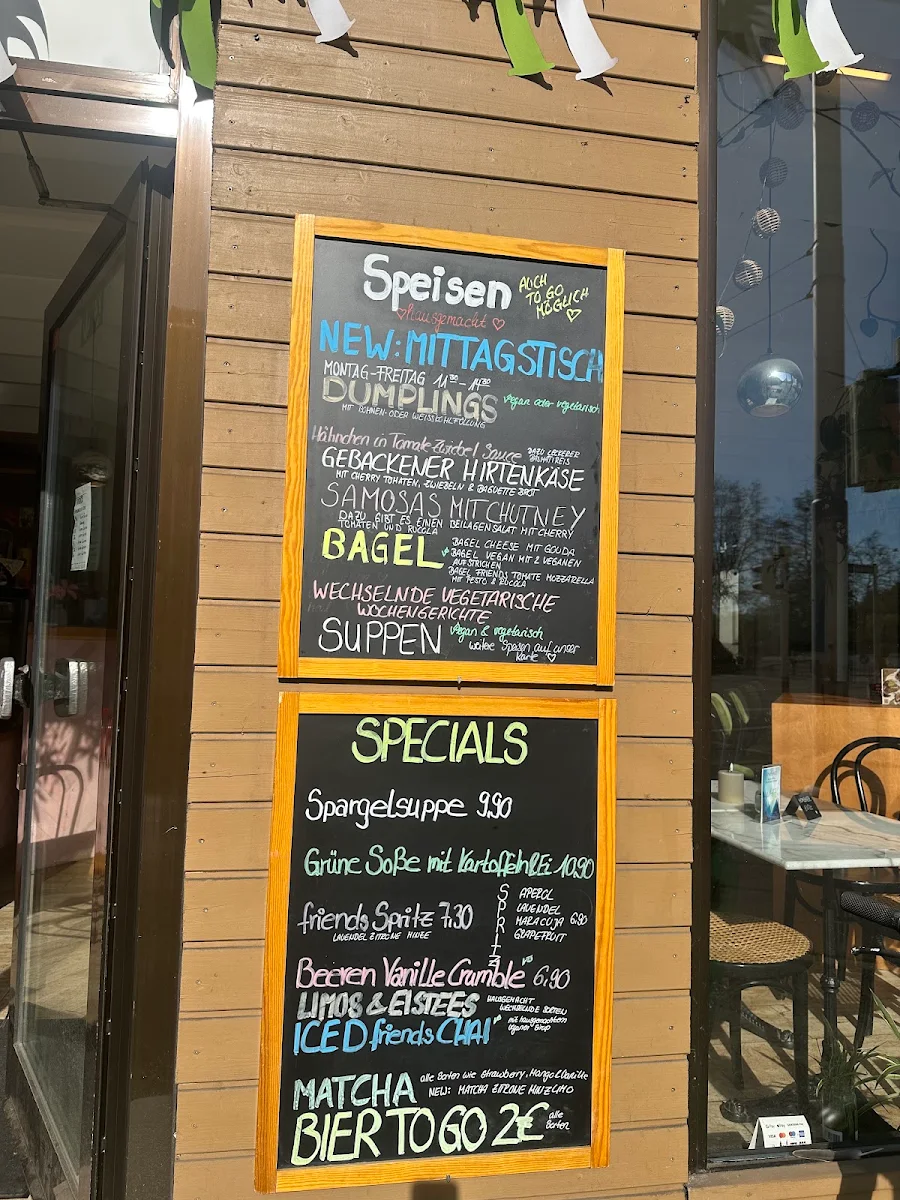 Speisen
AUCH
TO GO
MÖGLICH
♡hausgemacht♡
NEW: MITTAGSTISCH
MONTAG-FREITAG 11³⁰-14³⁰
DUMPLINGS vegan oder vegetarisch
MIT BOHNEN- ODER WEISSKOHLFÜLLUNG
Hähnchen in Tomate-Zwiebel Sauce DAZU LECKERER
BASMATIREIS
GEBACKENER HIRTENKÄSE
MIT CHERRY TOMATEN, ZWIEBELN & BAGUETTE BROT
SAMOSAS MIT CHUTNEY
DAZU GIBT ES EINEN BEILAGENSALAT MIT CHERRY
TOMATEN UND RUCOLA
BAGEL
BAGEL CHEESE MIT GOUDA
BAGEL VEGAN MIT 2 VEGANEN
AUFSTRICHEN
BAGEL FRIENDS TOMATE MOZZARELLA
MIT PESTO & RUCOLA
WECHSELNDE VEGETARISCHE
WOCHENGERICHTE
SUPPEN vegan & vegetarisch
weitere Speisen auf unser
Karte ♡
SPECIALS
Spargelsuppe 9.90
Grüne Soße mit Kartoffeln & Ei 10.90
friends Spritz 7.30
LAVENDEL ZITRONE MINZE
SPRITZ
APEROL
LAVENDEL
MARACUJA 6.90
GRAPEFRUIT
Beeren Vanille Crumble 6.90
LIMOS & EISTEES HAUSGEMACHT
WECHSELNDE SORTEN
ICED friends CHAI mit hausgemachtem
veganer Sirup
MATCHA alle Sorten wie Strawberry, Mango & Vanille
NEW: MATCHA ZITRONE MINZ LIMO
BIER TO GO 2€ alle
Sorten